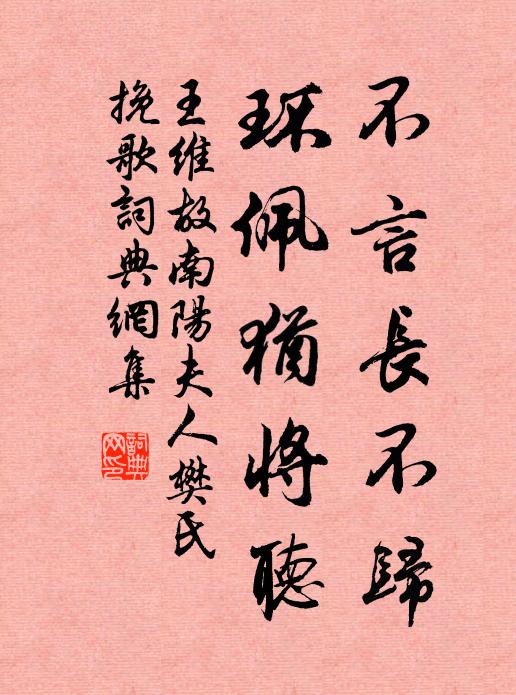 不言長不歸
環佩猶將聽
王維故南陽夫人樊氏
挽歌詞典網集
詞典網印